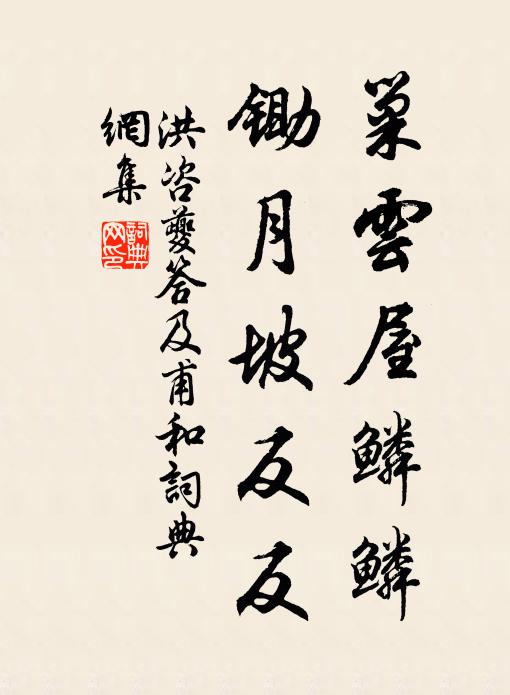 巢雲屋鱗鱗
鋤月坡反反
洪咨夔答及甫和詞典
網集
詞典
网印